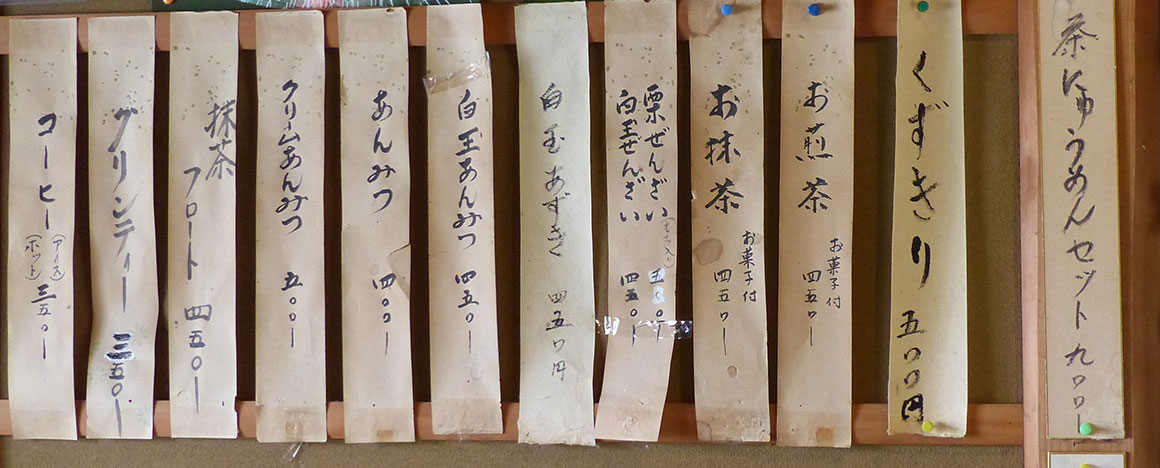 茶にゅうめんセット 九〇〇ー
くずきり 五〇〇円
お煎茶 お菓子付 四五〇ー
お抹茶 お菓子付 四五〇ー
栗ぜんざい 五〇〇ー
白玉ぜんざい 四五〇ー
白玉あずき 四五〇円
白玉あんみつ 四五〇ー
あんみつ 四〇〇ー
クリームあんみつ 五〇〇ー
抹茶フロート 四五〇ー
グリンティー 三五〇ー
コーヒー (アイス) (ホット) 三五〇ー